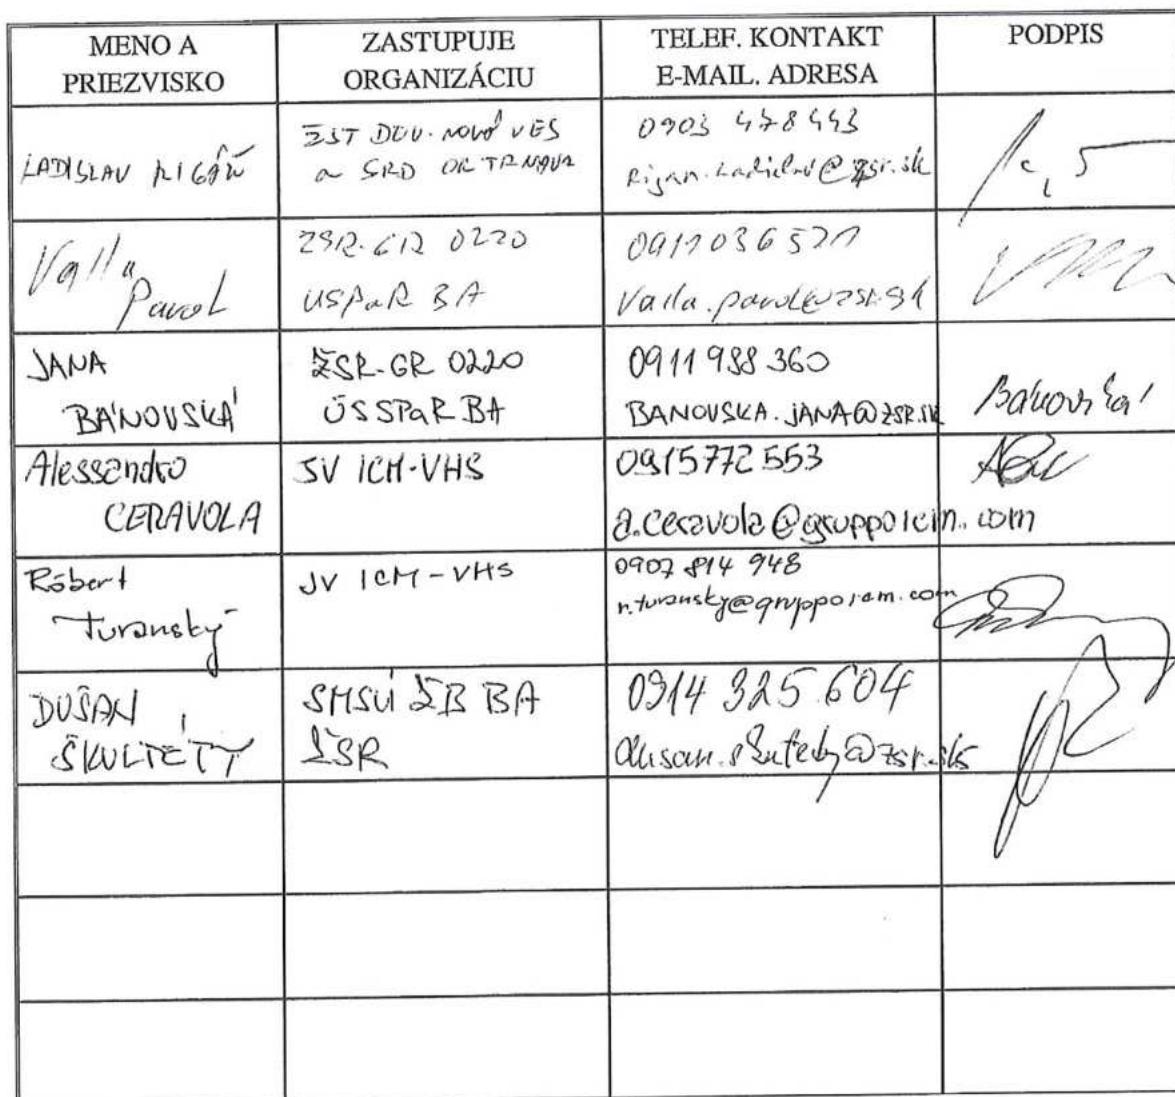 MENO A
PRIEZVISKO
ZASTUPUJE
ORGANIZÁCIU
TELEF. KONTAKT
E-MAIL. ADRESA
PODPIS
LADISLAV RIGÁŇ
ŽST DEV. NOVÁ VES
a SRD OR TRNAVA
0903 478 443
Rigan.Ladislav@zsr.sk
Valla
Pavol
ŽSR-GR 0220
USPaR BA
0911036521
Valla.pavol@zsr.sk
JANA
BÁNOVSKÁ
ŽSR-GR 0220
ÚSSPaR BA
0911 938 360
BANOVSKA.JANA@ZSR.SK
Bánovská
Alessandro
CERAVOLA
JV ICM-VHS
0915772553
a.ceravola@gruppoicm.com
Róbert
Turanský
JV ICM-VHS
0907 814 948
r.turansky@gruppoicm.com
DUŠAN
ŠKULTÉTY
SMSÚ ŽB BA
ŽSR
0914 325 604
dusan.skultety@zsr.sk